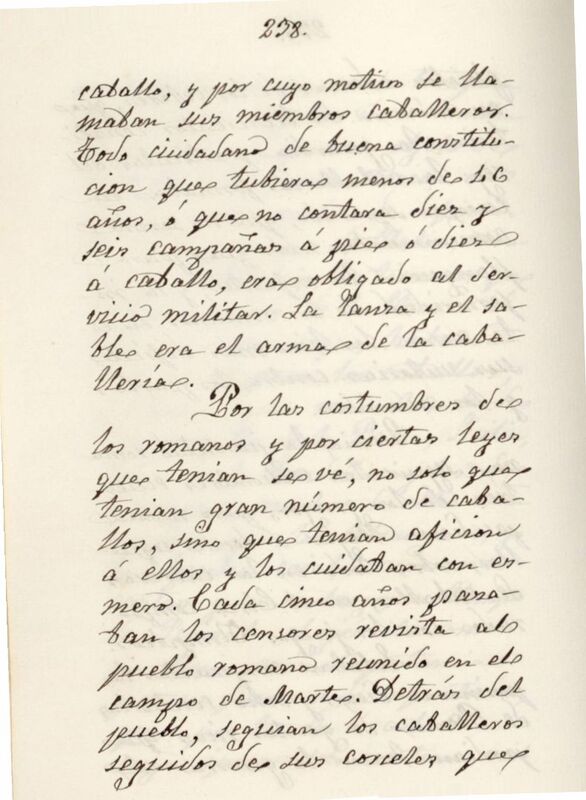 238.
caballo, y por cuyo motivo se lla-
maban sus miembros caballeros.
Todo ciudadano de buena constitu-
cion que tubiera menos de 46
años, ó que no contara diez y
seis campañas á pie ó diez
á caballo, era obligado al ser-
vicio militar. La lanza y el sa-
ble era el arma de la caba-
llería.
Por las costumbres de
los romanos y por ciertas leyes
que tenian se vé, no solo que
tenian gran número de caba-
llos, sino que tenian aficion
á ellos y los cuidaban con es-
mero. Cada cinco años pasa-
ban los censores revista al
pueblo romano reunido en el
campo de Marte. Detrás del
pueblo, seguian los caballeros
seguidos de sus corceles que